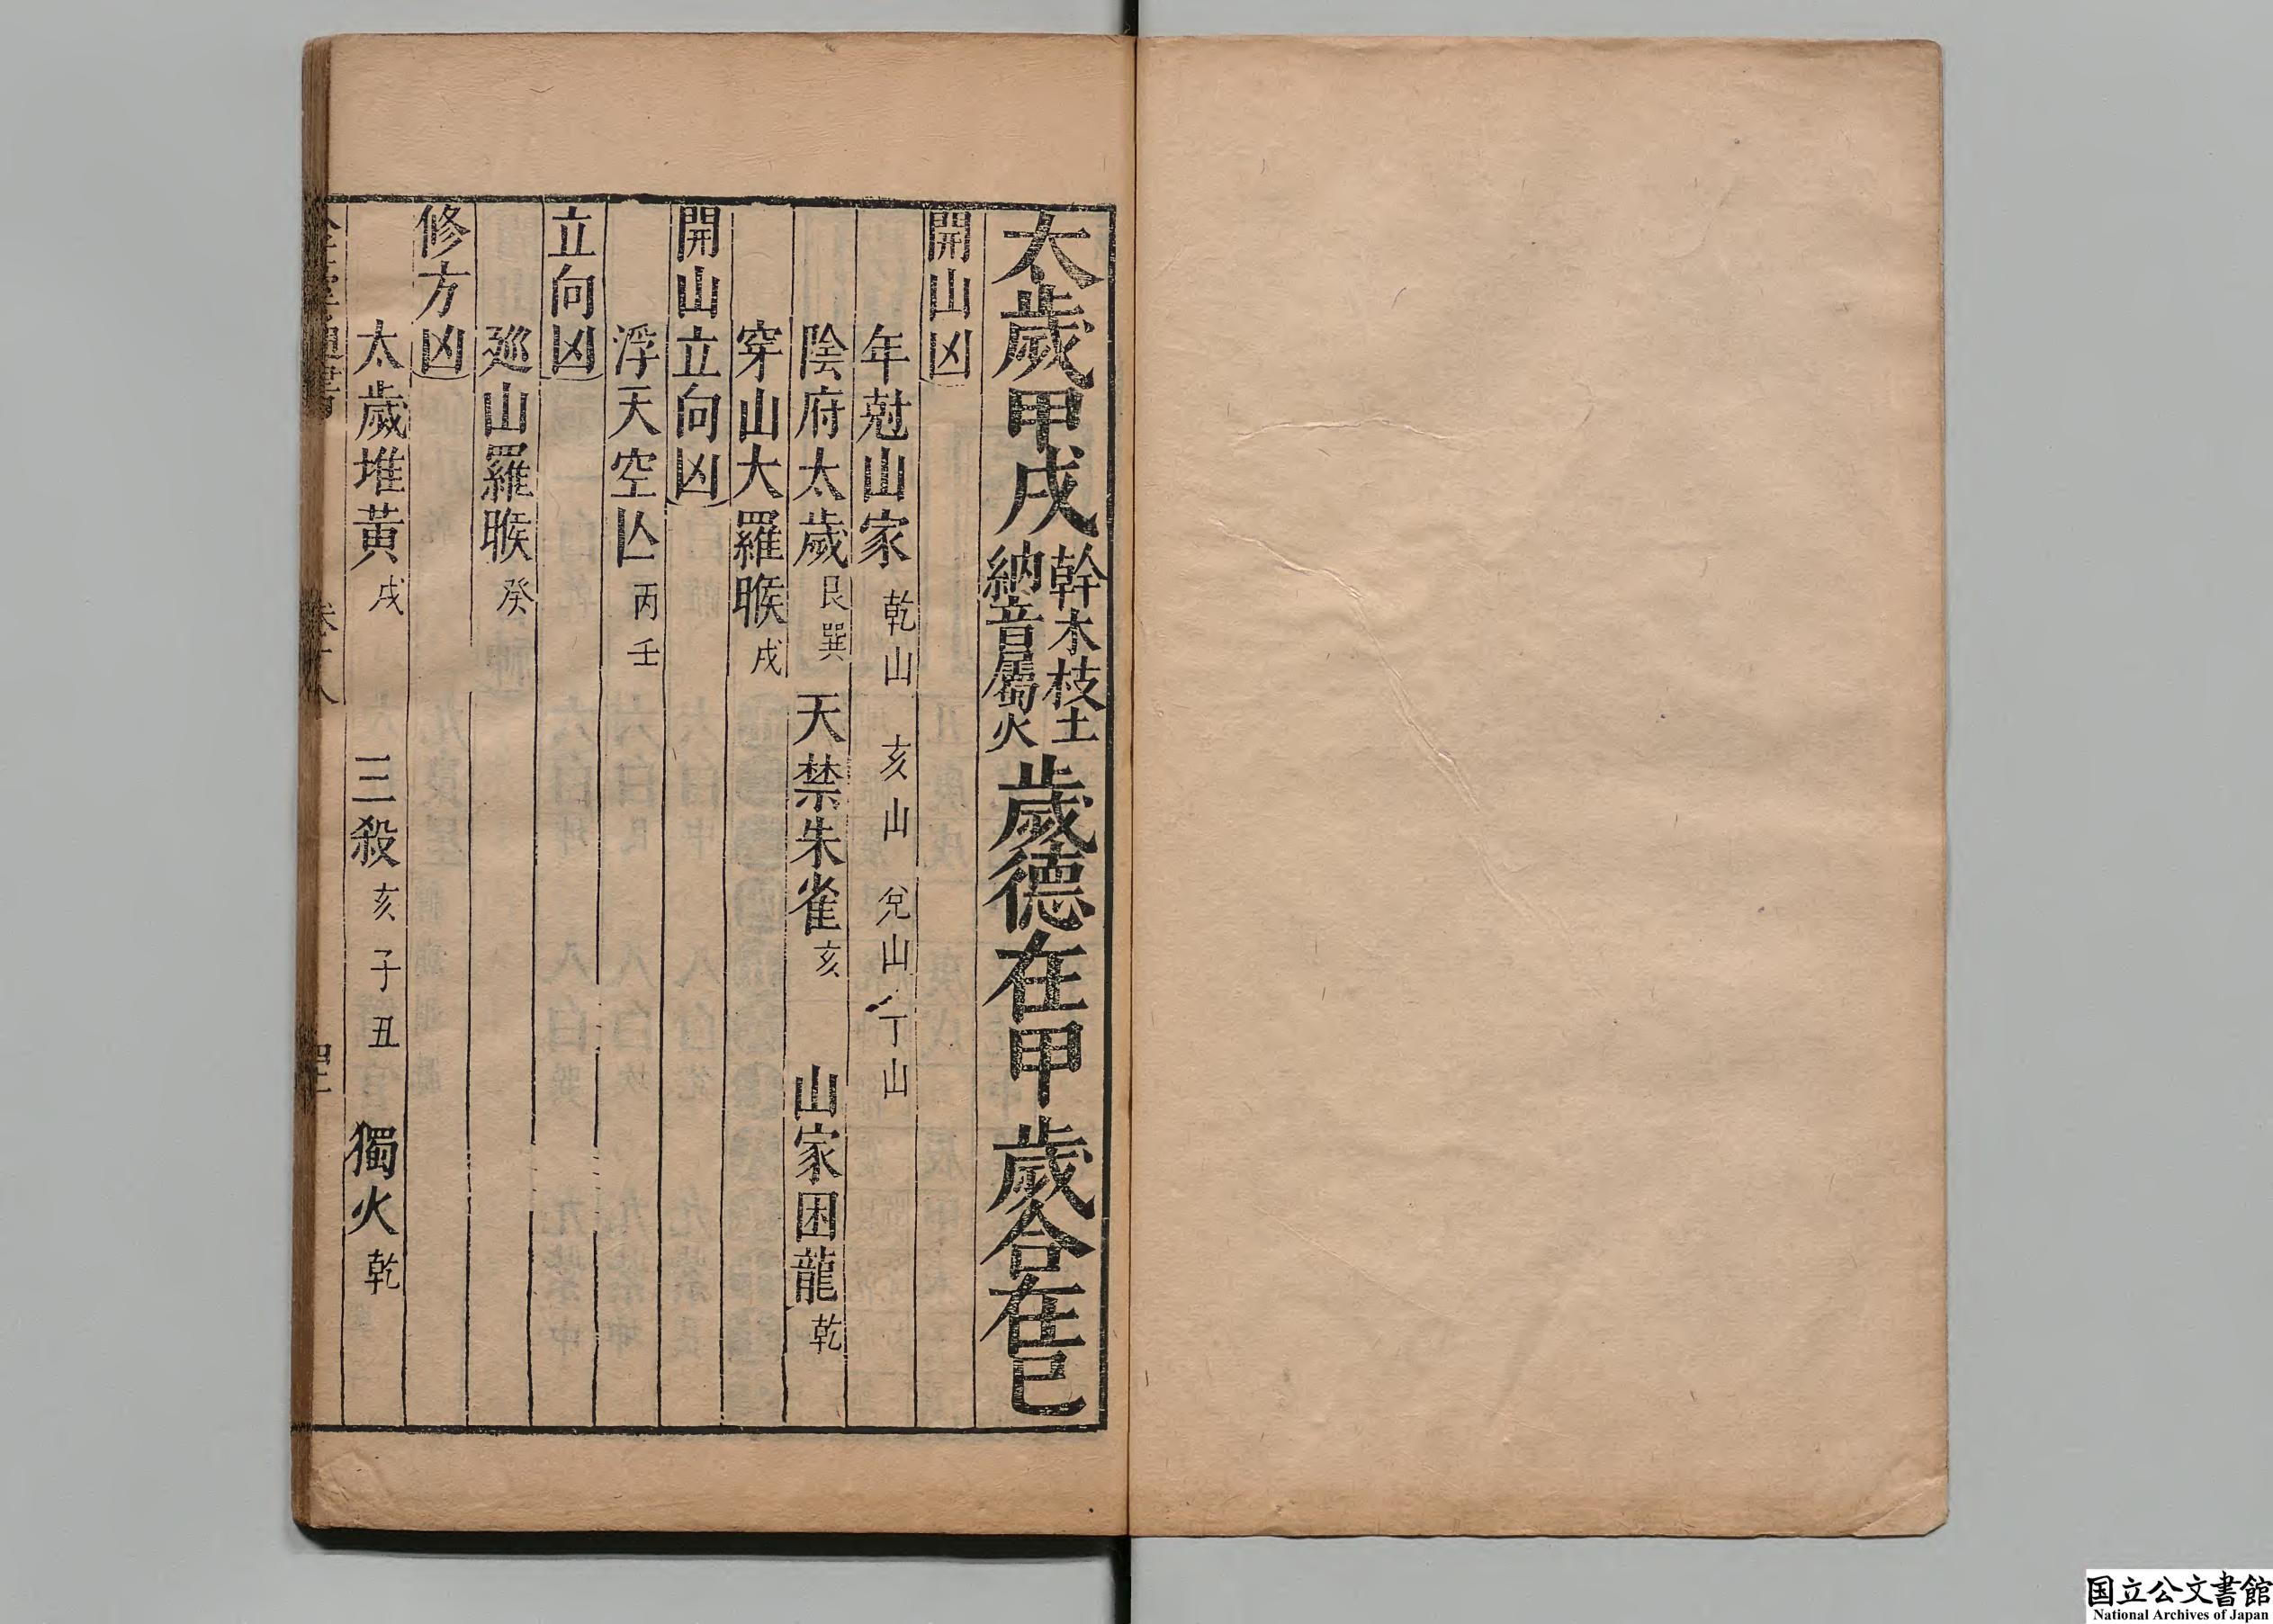 太歲甲戌 幹木枝土 納音屬火 歲德在甲 歲合在己
開山凶
年尅山家 乾山 亥山 兌山 丁山
陰府太歲 艮巽 天禁朱雀 亥 山家困龍 乾
穿山大羅睺 戌
開山立向凶
浮天空亾 丙壬
立向凶
廵山羅睺 癸
修方凶
太歲堆黃 戌 三殺 亥子丑 獨火 乾
国立公文書館
National Archives of Japan